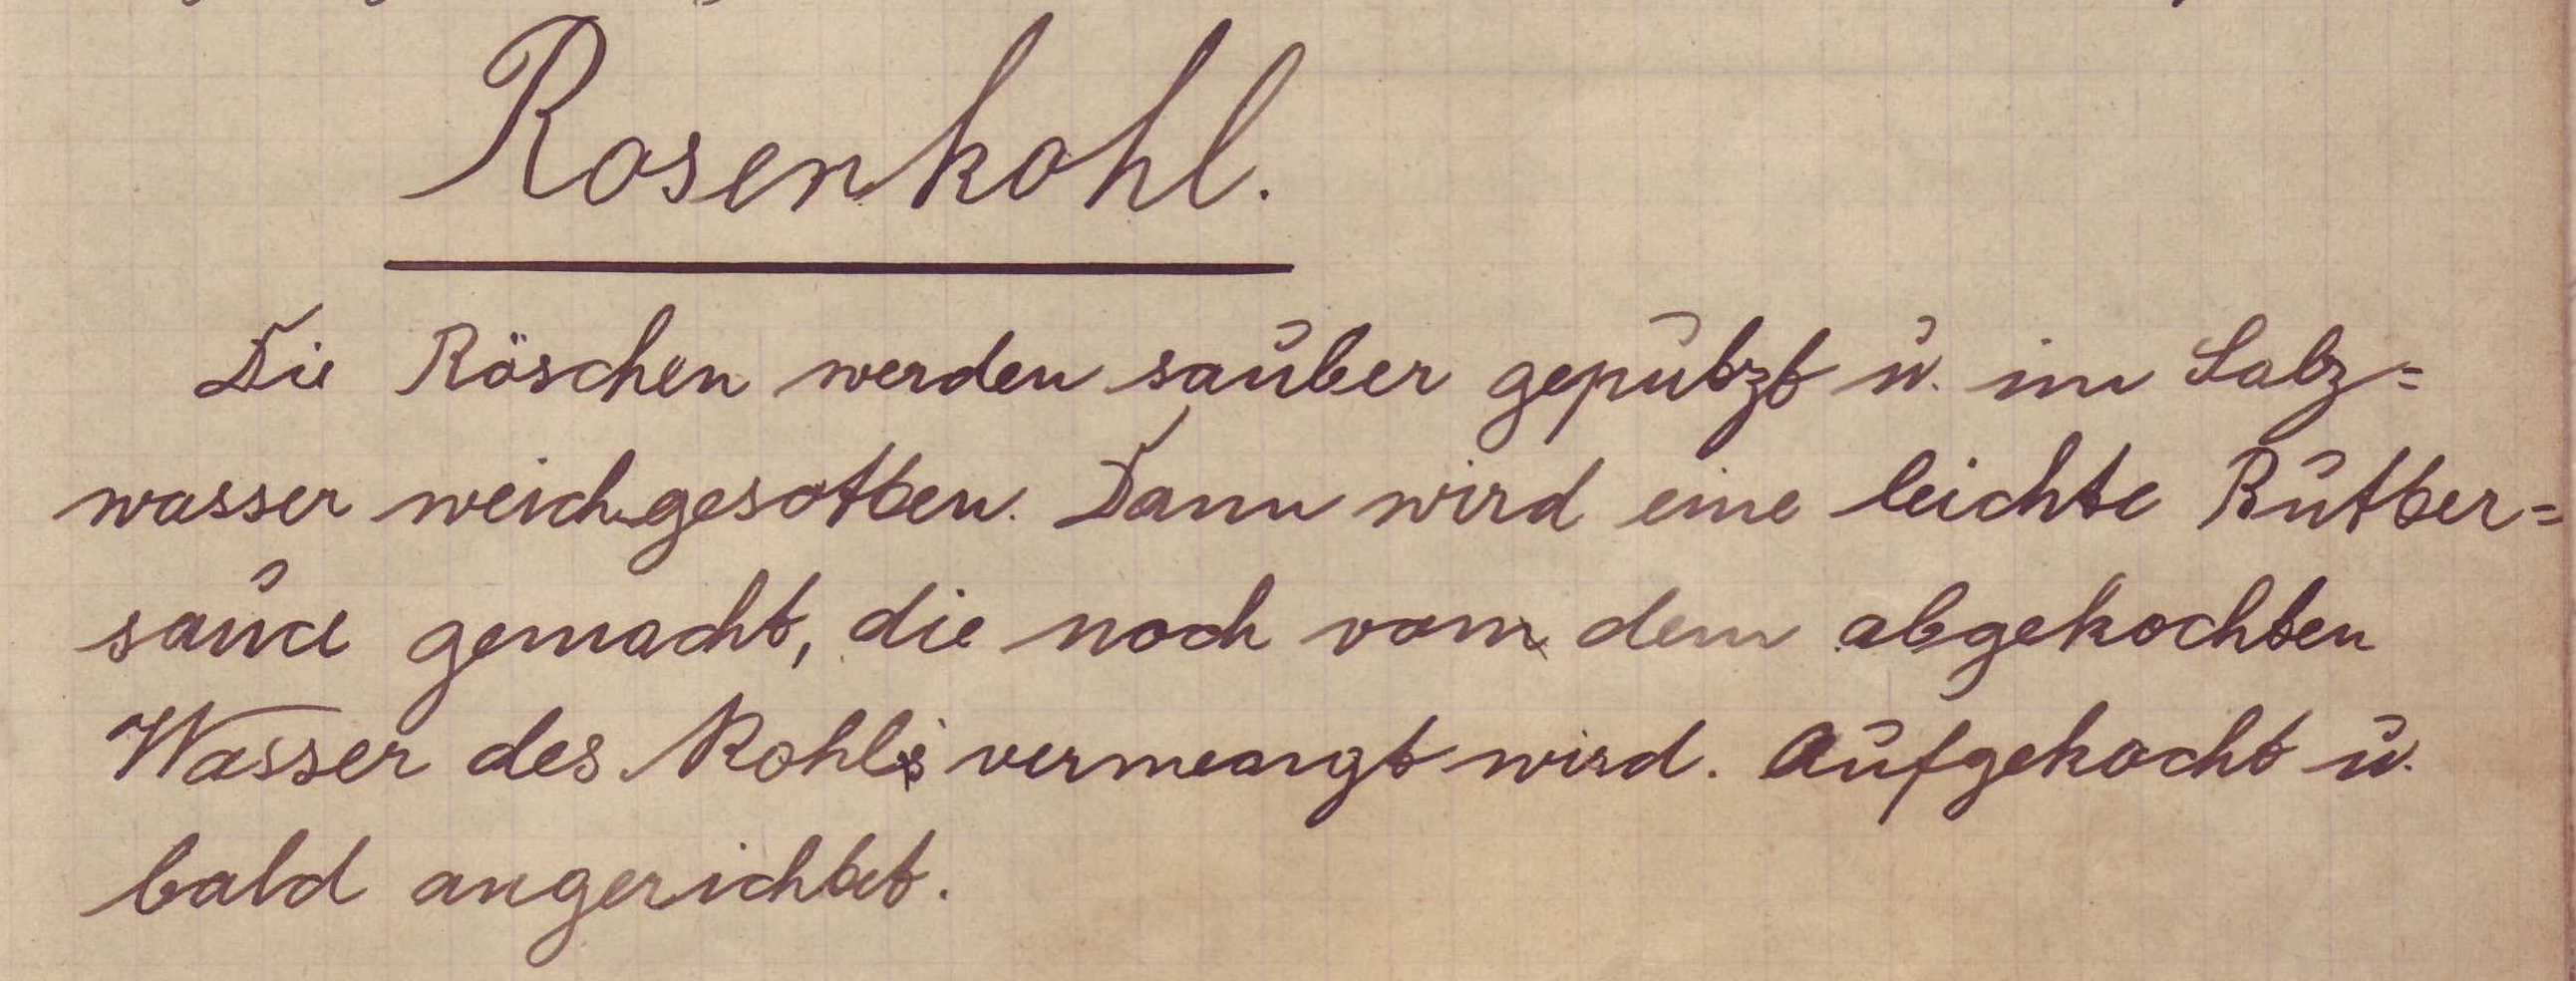 Rosenkohl.
Die Röschen werden sauber geputzt u. im Salz=
wasser weich gesotten. Dann wird eine leichte Butter=
sauce gemacht, die noch vom dem abgekochten
Wasser des Kohls vermengt wird. Aufgekocht u.
bald angerichtet.